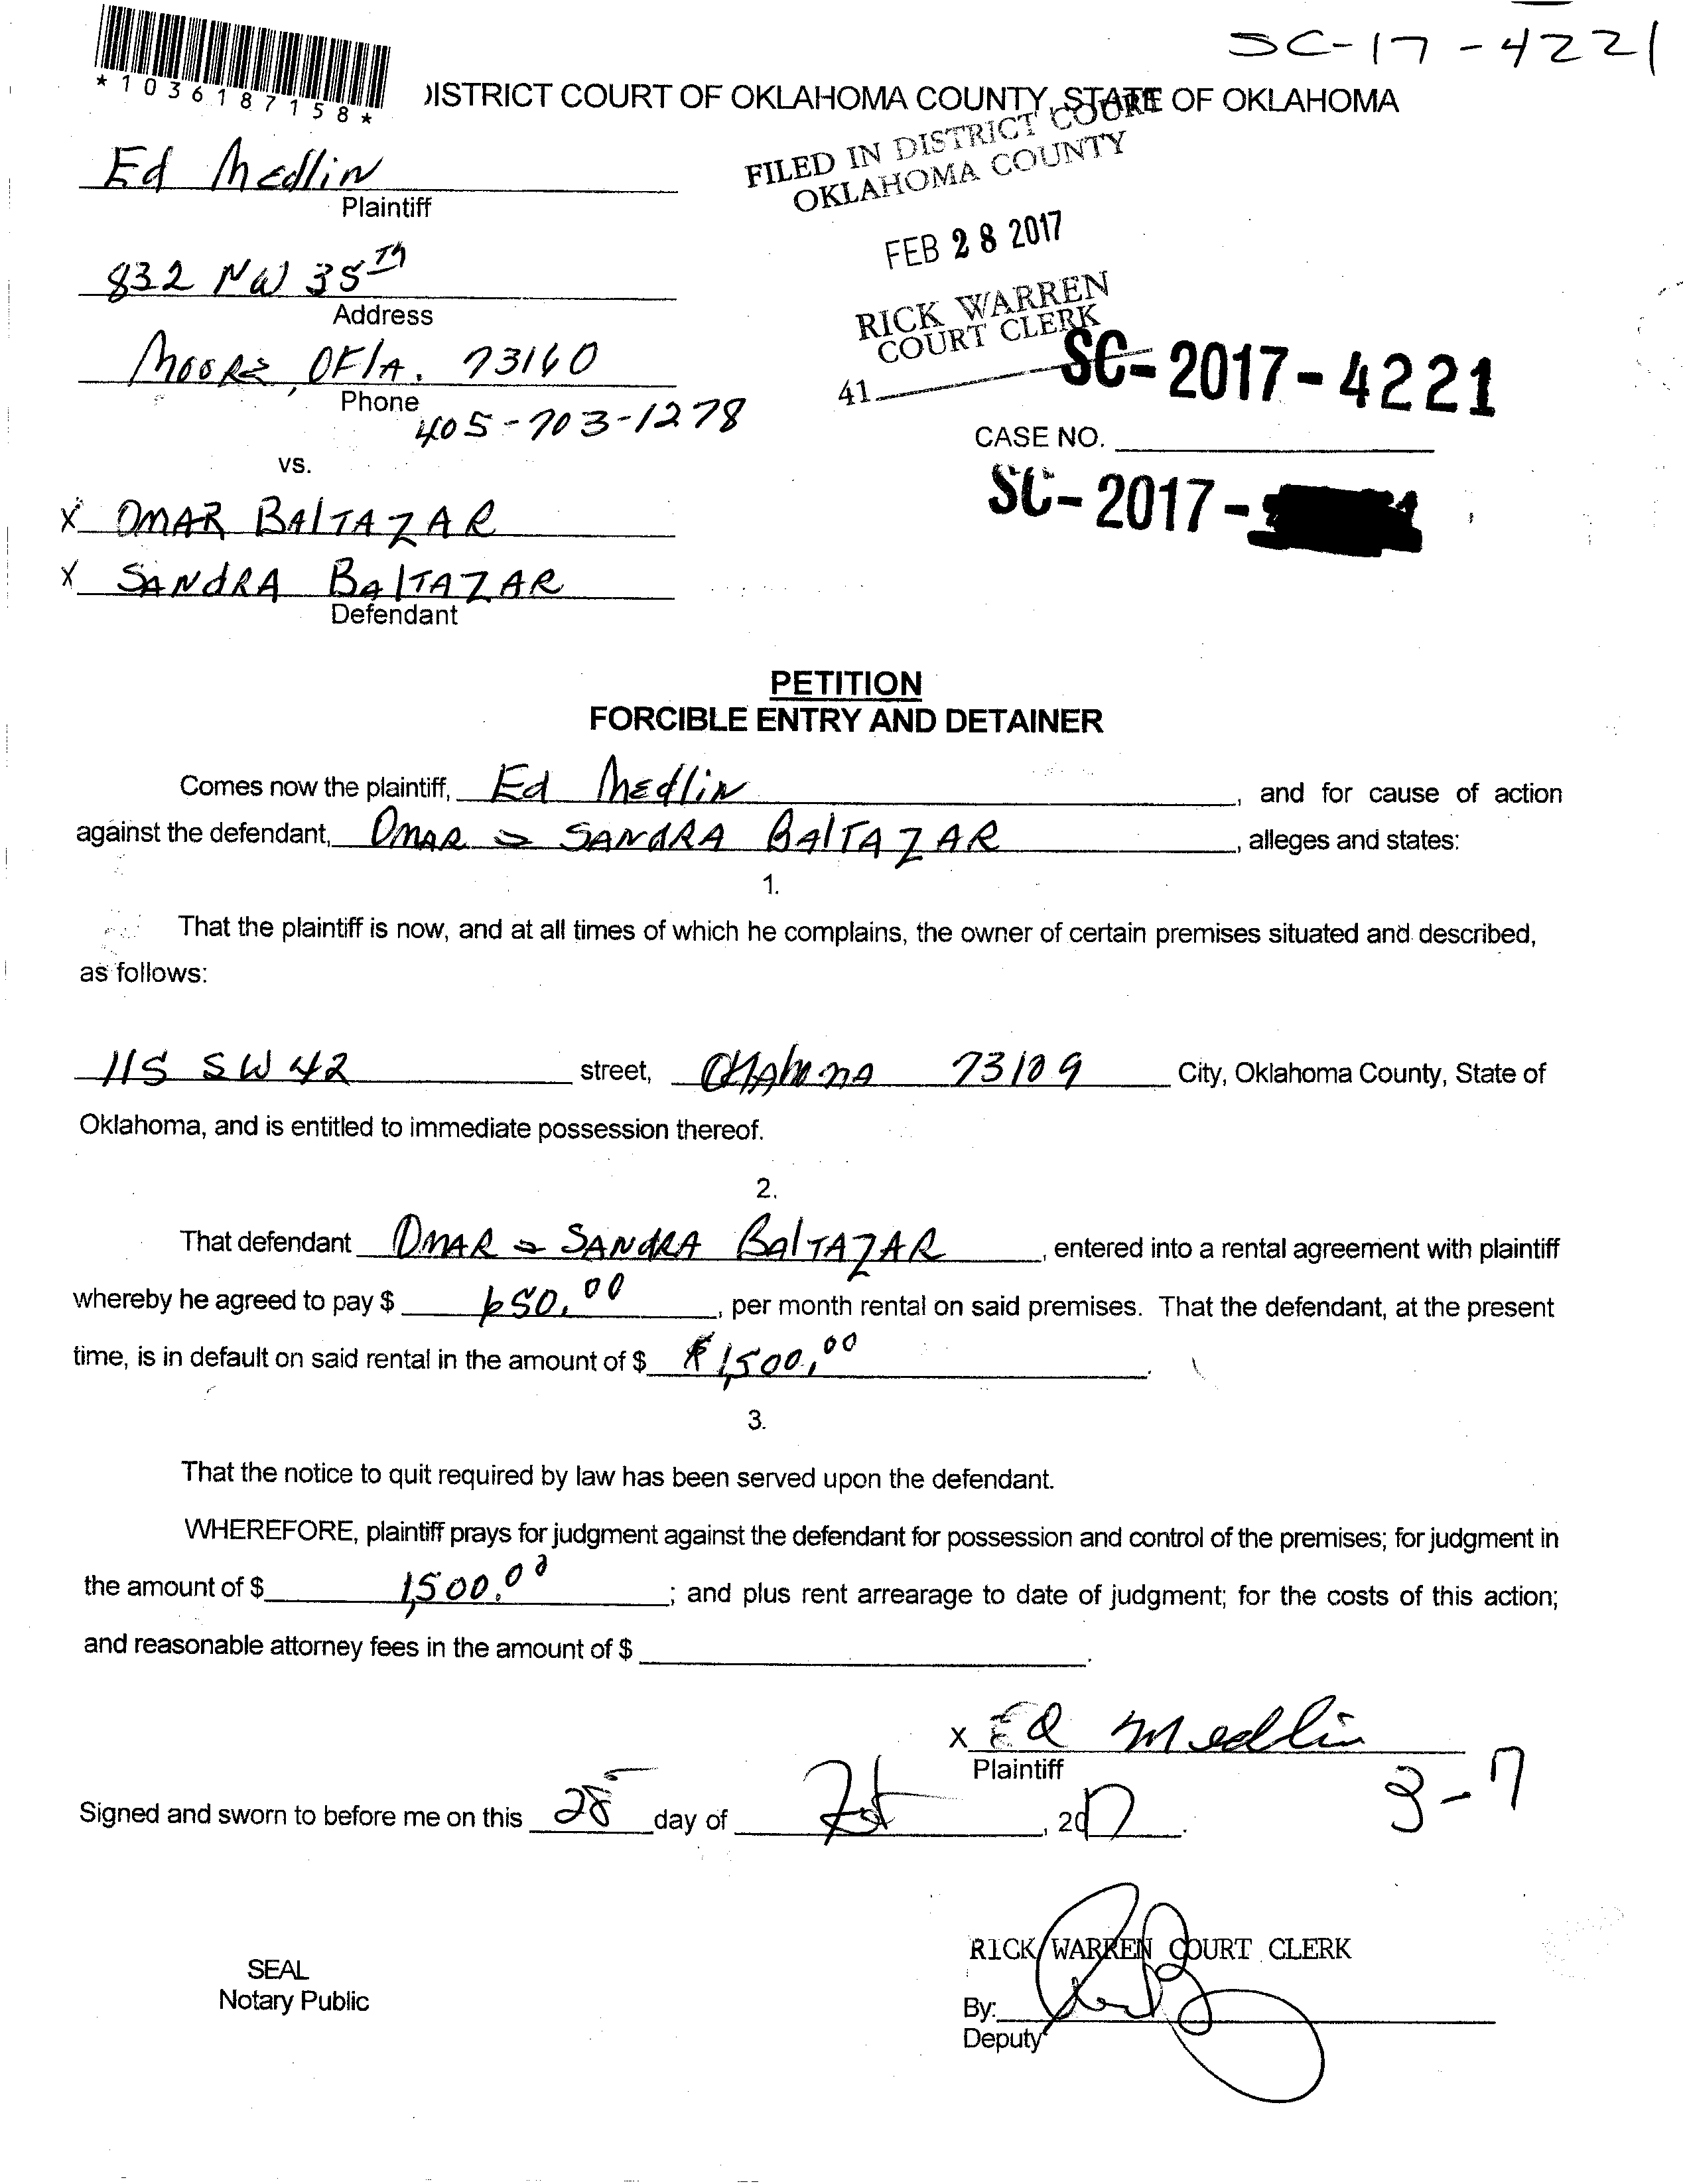 SC-17-4221
*1036187158*
DISTRICT COURT OF OKLAHOMA COUNTY, STATE OF OKLAHOMA
FILED IN DISTRICT COURT
OKLAHOMA COUNTY
Ed Medlin
Plaintiff
FEB 28 2017
832 NW 35Th
Address
RICK WARREN
COURT CLERK
MOORE, OklA. 73160
Phone
405-703-1278
41
SC-2017-4221
CASE NO.
vs.
SC-2017-
X OMAR BAlTAZAR
X SANdRA BAlTAZAR
Defendant
PETITION
FORCIBLE ENTRY AND DETAINER
Comes now the plaintiff, Ed Medlin, and for cause of action
against the defendant, OMAR & SANdRA BAlTAZAR, alleges and states:
1.
That the plaintiff is now, and at all times of which he complains, the owner of certain premises situated and described,
as follows:
115 SW 42 street, Oklahoma 73109 City, Oklahoma County, State of
Oklahoma, and is entitled to immediate possession thereof.
2.
That defendant OMAR & SANdRA BAlTAZAR, entered into a rental agreement with plaintiff
whereby he agreed to pay $ 650.00, per month rental on said premises. That the defendant, at the present
time, is in default on said rental in the amount of $ $1,500.00.
3.
That the notice to quit required by law has been served upon the defendant.
WHEREFORE, plaintiff prays for judgment against the defendant for possession and control of the premises; for judgment in
the amount of $ 1,500.00; and plus rent arrearage to date of judgment; for the costs of this action;
and reasonable attorney fees in the amount of $ .
X Ed Medlin
Plaintiff
3-7
Signed and sworn to before me on this 28 day of Feb, 2017.
RICK WARREN COURT CLERK
SEAL
Notary Public
By:
Deputy